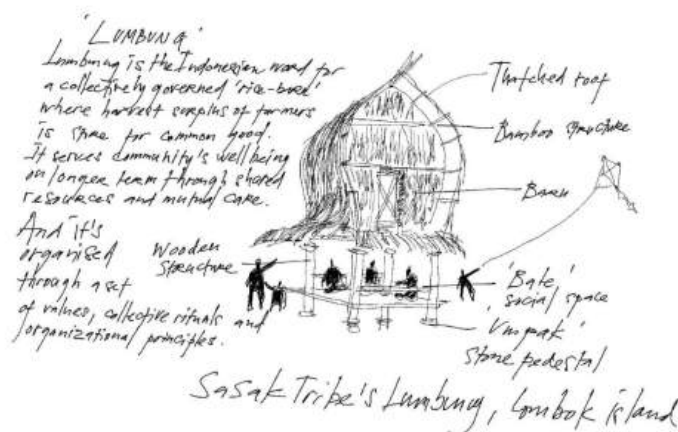 'LUMBUNG'
Lumbung is the Indonesian word for
a collectively governed 'rice-barn'
where harvest surplus of farmers
is store for common good.
It serves community's wellbeing
on longer term through shared
resources and mutual care.
And it's
organised
through a set
of values, collective rituals and
organizational principles.
Thatched roof
Bamboo structure
Barn
Wooden
structure
'Bale,'
social space
'Umpak'
Stone pedestal
Sasak Tribe's Lumbung, Lombok island